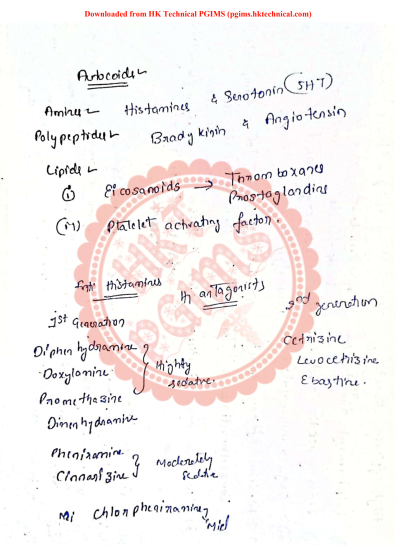 Downloaded from HK Technical PGIMS (pgims.hktechnical.com)
Autocoids
Amines Histamines & Serotonin (5HT)
Polypeptides Bradykinin & Angiotensin
Lipids
(i) Eicosanoids → Thromboxanes
Prostaglandins
(ii) Platelet activating factor.
Anti Histamines H1 antagonists
1st Generation 2nd generation
Diphenhydramine Cetrizine
Doxylamine Highly Levocetrizine
sedative. Ebastine.
Promethazine
Dimenhydramine
Pheniramine Moderately
Cinnarizine Sedative
Chlorpheniramine Mild
HKT
PGIMS